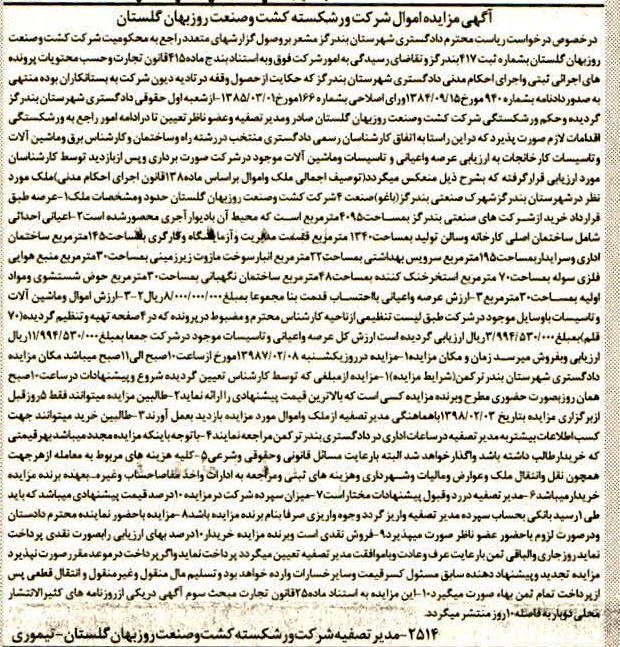 آگهی مزایده اموال شرکت ورشکسته کشت وصنعت روزبهان گلستان
درخصوص درخواست ریاست محترم دادگستری شهرستان بندرگز مشعر بروصول گزارشهای متعدد راجع به محکومیت شرکت کشت وصنعت
روزبهان گلستان بشماره ثبت۴۱۷بندرگز وتقاضای رسیدگی به امور شرکت فوق وبه استناد بندج ماده۴۱۵قانون تجارت وحسب محتویات پرونده
های اجرائی ثبتی واجرای احکام مدنی دادگستری شهرستان بندرگز که حکایت از حصول وقفه در تادیه دیون شرکت به بستانکاران بوده منتهی
به صدور دادنامه بشماره ۹۴۰ مورخ۱۳۸۴/۰۹/۱۵ورای اصلاحی بشماره ۱۶۶مورخ۱۳۸۵/۰۳/۰۱-ازشعبه اول حقوقی دادگستری شهرستان بندرگز
گردیده وحکم ورشکستگی شرکت کشت وصنعت روزبهان گلستان صادر ومدیر تصفیه وعضو ناظر تعیین تا درادامه امور راجع به ورشکستگی
اقدامات لازم صورت پذیرد که در این راستا به اتفاق کارشناسان رسمی دادگستری منتخب در رشته راه وساختمان وکارشناس برق وماشین آلات
و تاسیسات کارخانجات به ارزیابی عرصه واعیانی و تاسیسات وماشین آلات موجود در شرکت صورت برداری وپس ازبازدید توسط کارشناسان
مورد ارزیابی قرارگرفته که بشرح ذیل منعکس میگردد(توصیف اجمالی ملک واموال براساس ماده۱۳۸قانون اجرای احکام مدنی)ملک مورد
نظر در شهرستان بندرگزشهرک صنعتی بندرگز(باغو)صنعت ۴شرکت کشت وصنعت روزبهان گلستان حدود ومشخصات ملک۱-عرصه طبق
قرارداد خرید ازشرکت های صنعتی بندرگز بمساحت۴۰۹۵مترمربع است که محیط آن بادیوار آجری محصورشده است۲-اعیانی احداثی
شامل ساختمان اصلی کارخانه وسالن تولید بمساحت۱۳۴۰ مترمربع قسمت مدیریت وآزمایشگاه وگارگری بمساحت۱۴۵مترمربع ساختمان
اداری وسرایداربمساحت۱۹۵مترمربع سرویس بهداشتی بمساحت۲۲مترمربع انبارسوخت مازوت زیرزمینی بمساحت۳۰مترمربع منبع هوایی
فلزی سوله بمساحت۷۰ مترمربع استخرخنک کننده بمساحت۴۸مترمربع ساختمان نگهبانی بمساحت۳۰مترمربع حوض شستشوی ومواد
اولیه بمساحت۳۰مترمربع۳-ارزش عرصه واعیانی بااحتساب قدمت بنا مجموعا بمبلغ۸/۰۰۰/۰۰۰/۰۰۰ریال۲-۳-ارزش اموال وماشین آلات
و تاسیسات باوسایل موجود در شرکت طبق لیست تنظیمی ازناحیه کارشناس محترم ومضبوط در پرونده که در۴صفحه تهیه وتنظیم گردیده(۷۰
قلم)بمبلغ۳/۹۹۴/۵۳۰/۰۰۰ریال ارزیابی گردیده است ارزش کل عرصه واعیانی و تاسیسات موجود در شرکت جمعا بمبلغ۱۱/۹۹۴/۵۳۰/۰۰۰ریال
ارزیابی وبفروش میرسد زمان و مکان مزایده۱-مزایده در روزیکشنبه ۱۳۹۸۷/۰۲/۰۸مورخ ازساعت۱۰صبح الی۱۱صبح میباشد مکان مزایده
دادگستری شهرستان بندر ترکمن(شرایط مزایده)۱-مزایده ازمبلغی که توسط کارشناس تعیین گردیده شروع وپیشنهادات درساعت۱۰صبح
همان روزبصورت حضوری مطرح وبرنده مزایده کسی است که بالاترین قیمت پیشنهادی را ارائه نماید۲-طالبین مزایده میتوانند فقط ۵روزقبل
ازبرگزاری مزایده بتاریخ ۱۳۹۸/۰۲/۰۳باهماهنگی مدیرتصفیه ازملک واموال مورد مزایده بازدید بعمل آورند۳-طالبین خرید میتوانند جهت
کسب اطلاعات بیشتر به مدیر تصفیه درساعات اداری در دادگستری بندر ترکمن مراجعه نمایند۴-باتوجه باینکه مزایده مجدد میباشد بهر قیمتی
که خریدارطالب داشته باشد واگذار خواهد شد البته بارعایت مسائل قانونی وحقوقی وشرعی۵-کلیه هزینه های مربوط به معامله ازهرجهت
همچون نقل وانتقال ملک وعوارض ومالیات وشهرداری وهزینه های ثبتی ومراجعه به ادارات واخذ مفاصاحساب وغیره-بعهده برنده مزایده
خریدارمیباشد۶-مدیر تصفیه در رد وقبول پیشنهادات مختاراست۷-میزان سپرده شرکت در مزایده ۱۰درصد قیمت پیشنهادی میباشد که باید
طی ۱رسید بانکی بحساب سپرده مدیر تصفیه واریز گردد وجوه واریزی صرفا بنام برنده مزایده باشد۸-مزایده باحضور نماینده محترم دادستان
ودرصورت لزوم باحضور عضو ناظر صورت میپذیرد۹-فروش نقدی است وبرنده مزایده خریدار۱۰درصد بهای ارزیابی رابصورت نقدی پرداخت
نماید روزجاری والباقی ثمن بارعایت عرف وعادت وباموافقت مدیر تصفیه تعیین میگردد پرداخت نماید واگرپرداخت درموعد مقرر صورت نپذیرد
مزایده تجدید وپیشنهاد دهنده سابق مسئول کسر قیمت وسایر خسارات وارده خواهد بود و تسلیم مال منقول وغیرمنقول و انتقال قطعی پس
ازپرداخت تمام ثمن بهاء صورت میگیرد۱۰-این مزایده به استناد ماده۲۵قانون تجارت مبحث سوم آگهی دریکی ازروزنامه های کثیرالانتشار
محلی دوبار به فاصله۱۰روز منتشر میگردد.
۲۵۱۴-مدیر تصفیه شرکت ورشکسته کشت وصنعت روزبهان گلستان-تیموری